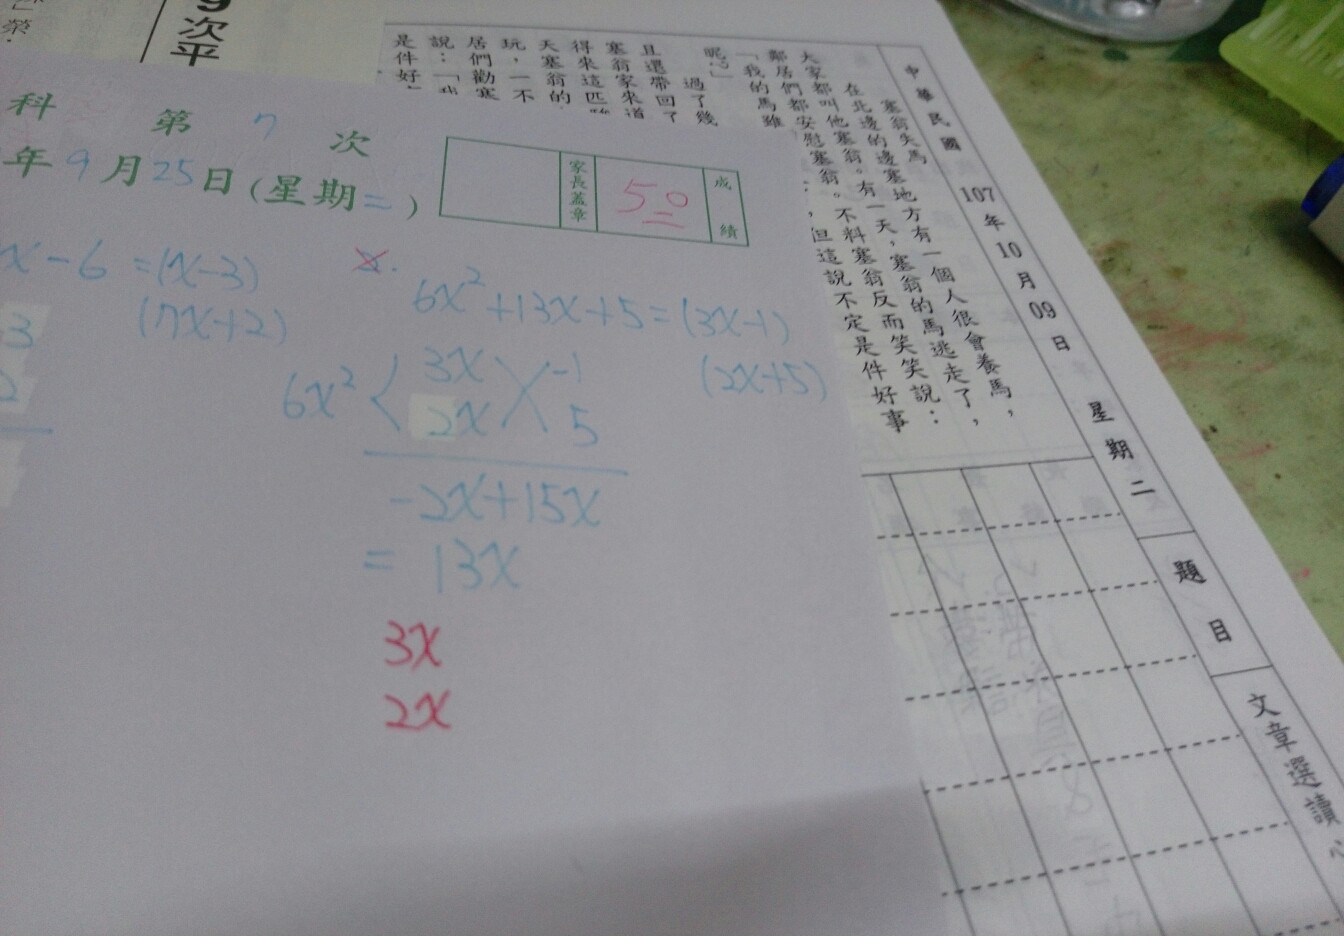 次平
科 第 7 次
年9月25日(星期二)
家長蓋章 50 成績
x-6=(x-3)
(7x+2)
2.
6x²+13x+5=(3x-1)
(2x+5)
6x² 3x -1
2x 5
-2x+15x
= 13x
3x
2x
中華民國 107 年 10 月 09 日 星期二 題目 文章選讀
塞翁失馬
在北邊的邊塞地方有一個人很會養馬,
大家都叫他塞翁。有一天,塞翁的馬逃走了,
鄰居們都安慰塞翁。不料塞翁反而笑笑說:
「我的馬雖
,但這說不定是件好事
呢!」
過了幾
且還帶回了
塞翁家來道
得來這匹
天塞翁的
玩,一不
居們勸塞
說:「我
是件好